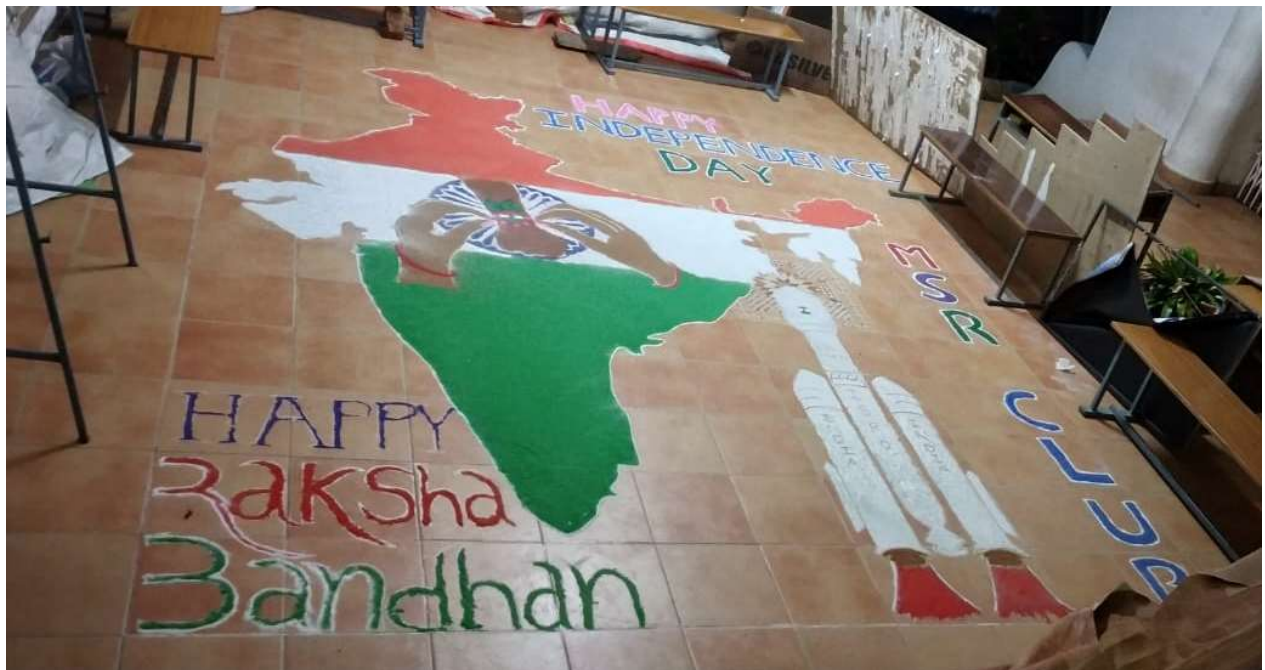 HAPPY
INDEPENDENCE
DAY
MSR
CLUB
HAPPY
Raksha
Bandhan